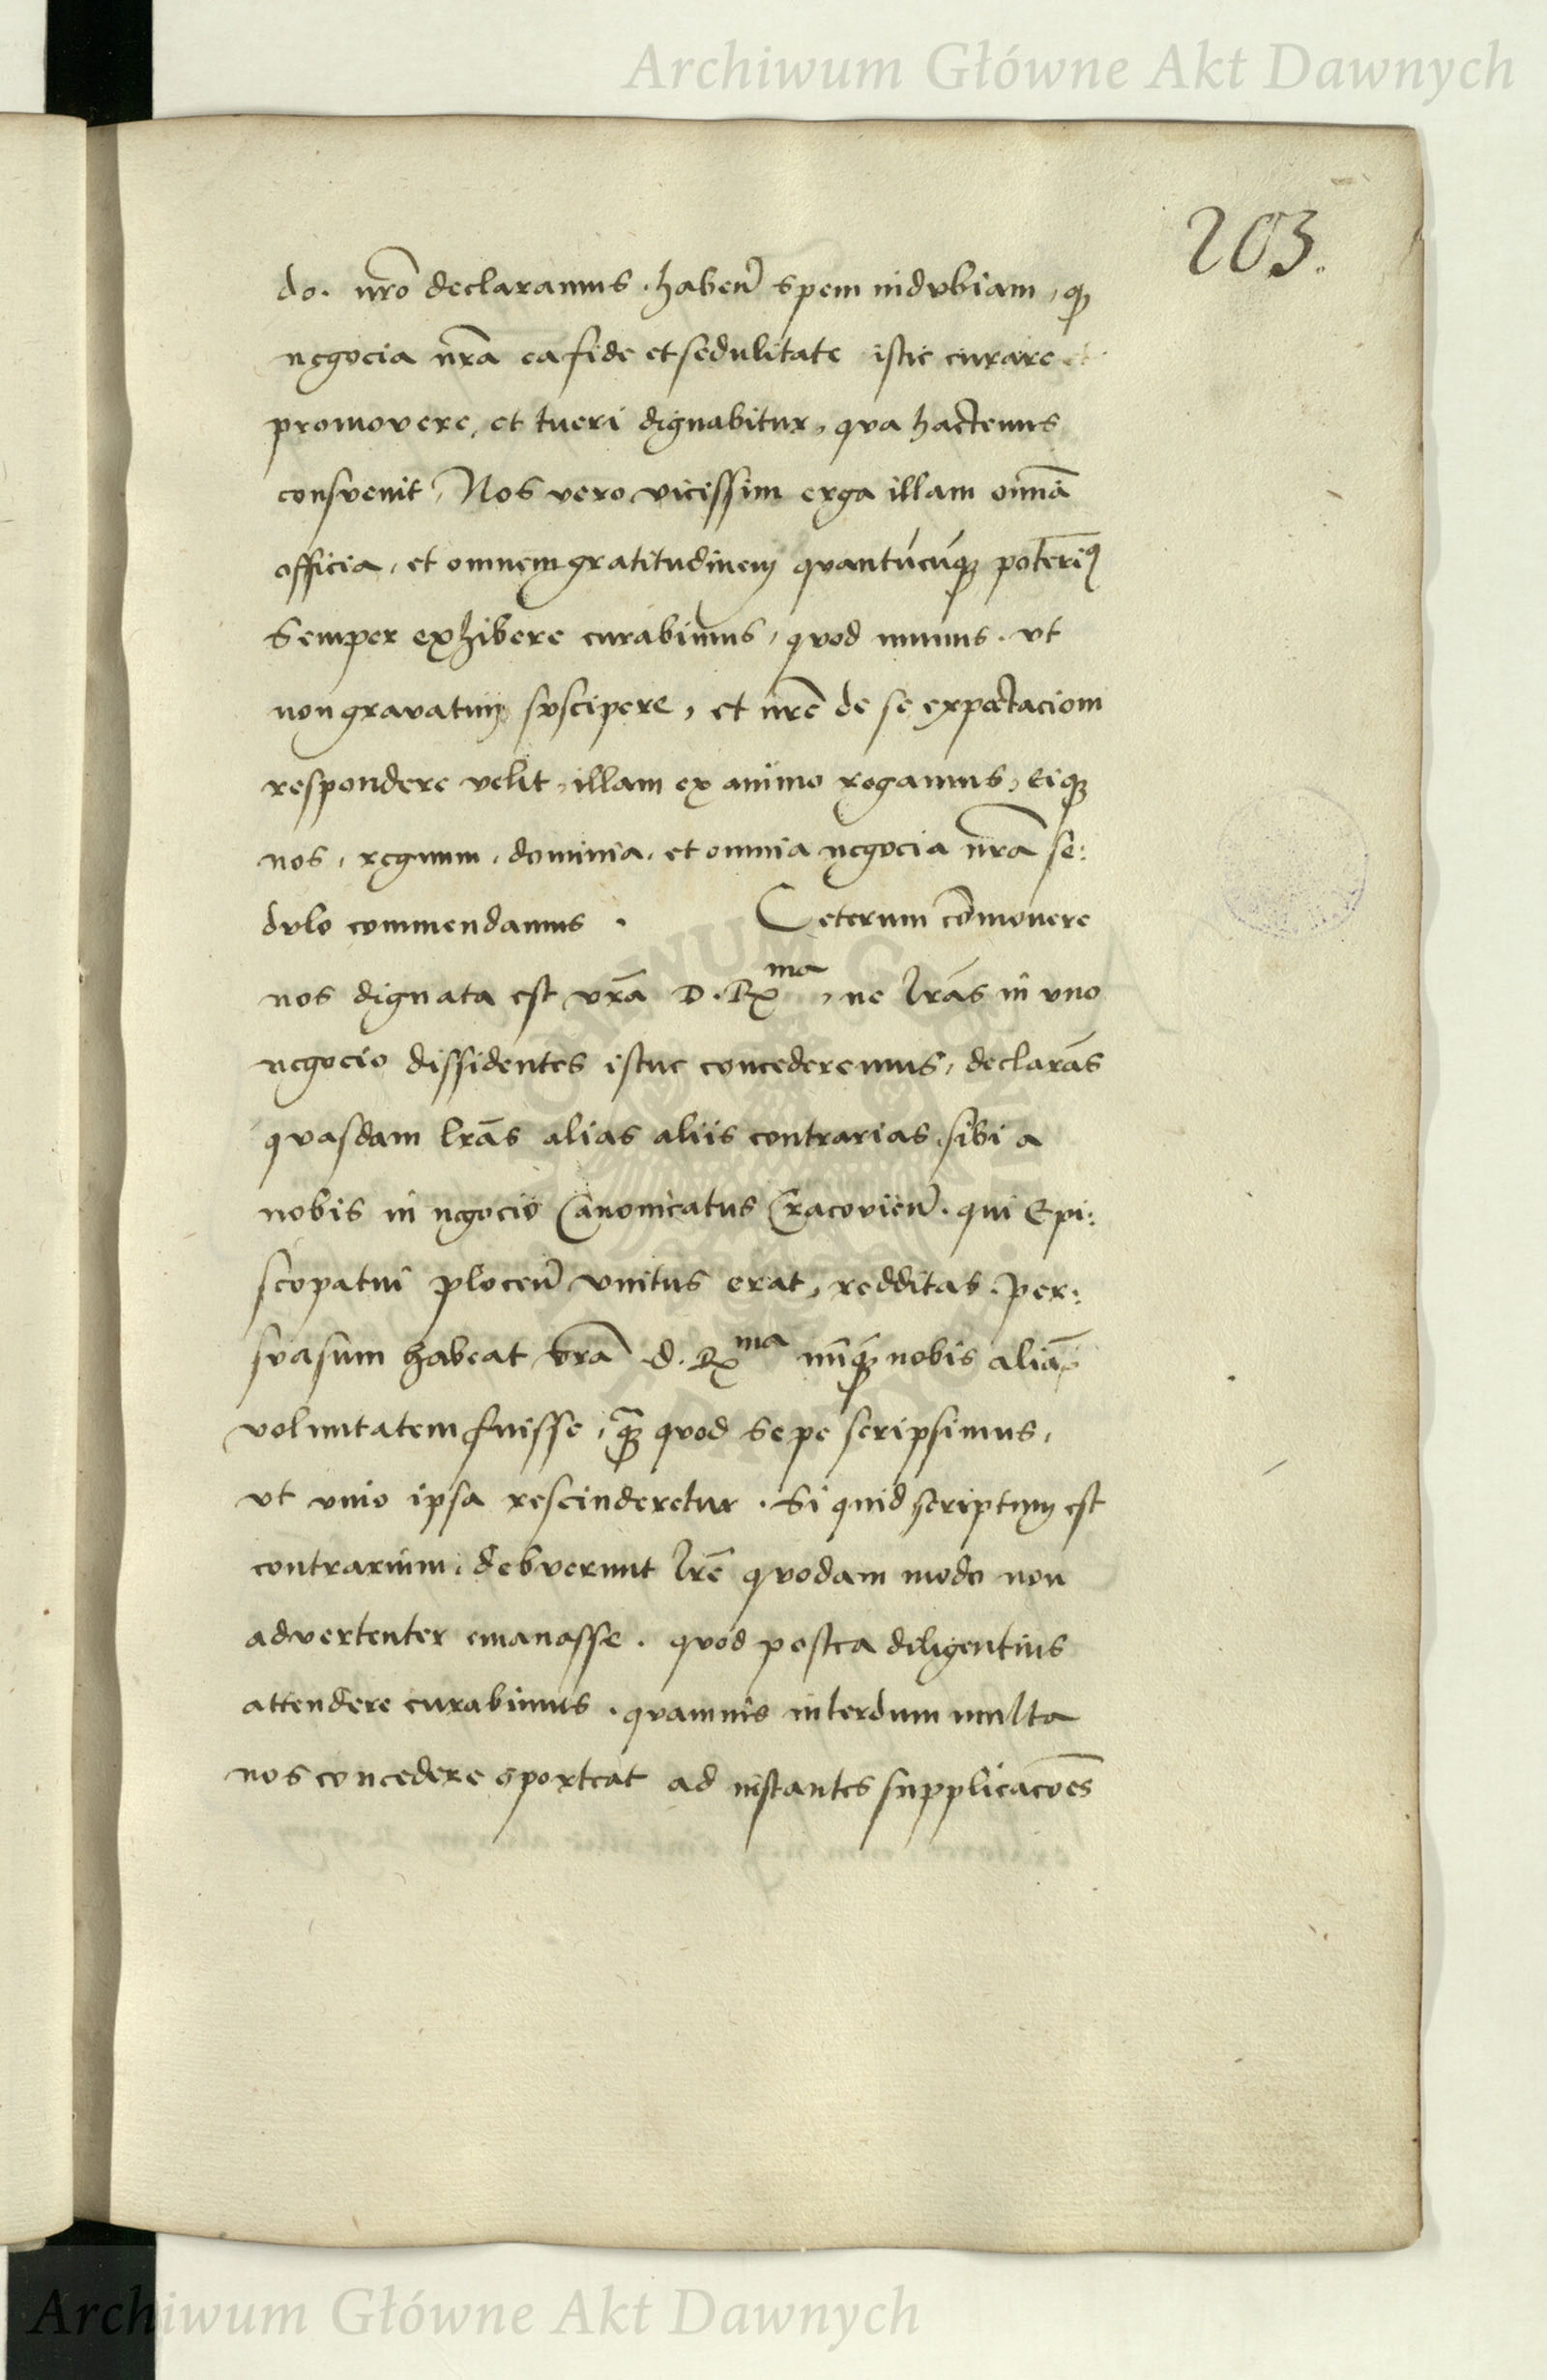 Archiwum Główne Akt Dawnych
203.
do. nr̃o declaramus. haben̄ spem indubiam, q
negocia nr̃a ea fide et sedulitate istic curare et
promovere, et tueri dignabitur, qva hactenus
consvevit, Nos vero vicissim erga illam om̃ia
officia, et omnem gratitudinem qvantu̍cu̍q poterim9
Semper exhibere curabimus, qvod munus. vt
non gravatim svscipere, et nr̃e de se expectaciom
respondere velit, illam ex animo rogamus, Eiq
nos, regnum, dominia, et omnia negocia nr̃a se:
dvlo commendamus. Ceterum com̃onere
nos dignata est vr̃a D. Rma, ne lr̃as in vno
negocio dissidentes istuc concederemus, declarãs
qvasdam lr̃as alias aliis contrarias sibi a
nobis in negocio Canonicatus Cracovien̄. qui Epi:
scopatui plocen̄ vnitus erat, redditas. Per:
svasum habeat vr̃a d. Rma nũq nobis aliã
voluntatem fuisse, q̃ qvod Sepe scripsimus,
vt vnio ipsa rescinderetur. Si quid scriptum est
contrarium, debverunt lr̃e qvodam modo non
advertenter emanasse. qvod postea diligentius
attendere curabimus. qvamvis interdum multa
nos concedere oporteat ad instantes supplicacões
Archiwum Główne Akt Dawnych